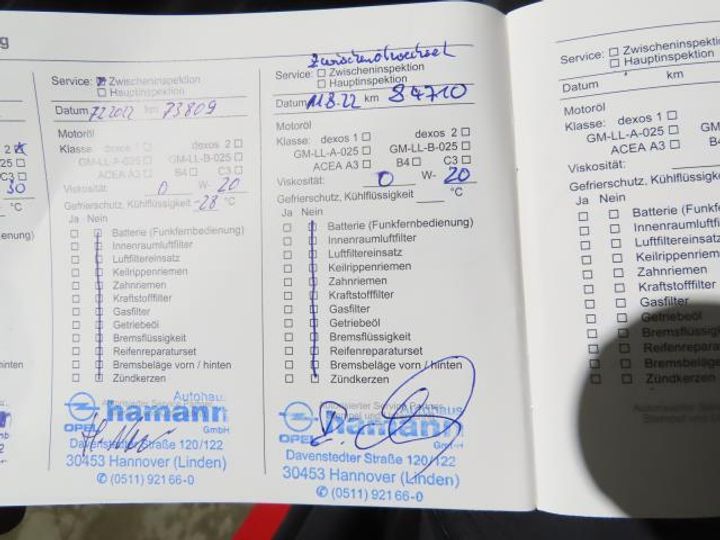 g
Service: Zwischeninspektion
Hauptinspektion
Datum 7.2.2022 km 73809
Motoröl
Klasse: dexos 1 dexos 2
GM-LL-A-025 GM-LL-B-025
ACEA A3 B4 C3
Viskosität: 0 W- 20
Gefrierschutz, Kühlflüssigkeit -28 °C
Ja Nein
Batterie (Funkfernbedienung)
Innenraumluftfilter
Luftfiltereinsatz
Keilrippenriemen
Zahnriemen
Kraftstofffilter
Gasfilter
Getriebeöl
Bremsflüssigkeit
Reifenreparaturset
Bremsbeläge vorn / hinten
Zündkerzen
Autohaus
hamann
OPEL GmbH
Davenstedter Straße 120/122
30453 Hannover (Linden)
✆ (0511) 921 66-0
Zwischenölwechsel
Service: Zwischeninspektion
Hauptinspektion
Datum 11.8.22 km 84710
Motoröl
Klasse: dexos 1 dexos 2
GM-LL-A-025 GM-LL-B-025
ACEA A3 B4 C3
Viskosität: 0 W- 20
Gefrierschutz, Kühlflüssigkeit °C
Ja Nein
Batterie (Funkfernbedienung)
Innenraumluftfilter
Luftfiltereinsatz
Keilrippenriemen
Zahnriemen
Kraftstofffilter
Gasfilter
Getriebeöl
Bremsflüssigkeit
Reifenreparaturset
Bremsbeläge vorn / hinten
Zündkerzen
hamann
OPEL GmbH
Davenstedter Straße 120/122
30453 Hannover (Linden)
✆ (0511) 921 66-0
Service: Zwischeninspektion
Hauptinspektion
Datum km
Motoröl
Klasse: dexos 1
GM-LL-A-025 GM-LL
ACEA A3 B4
Viskosität: W-
Gefrierschutz, Kühlflüssigkeit
Ja Nein
Batterie (Funkf
Innenraumluftfil
Luftfiltereinsatz
Keilrippenriemen
Zahnriemen
Kraftstofffilter
Gasfilter
Getriebeöl
Bremsflüssigk
Reifenreparatu
Bremsbeläge vo
Zündkerzen